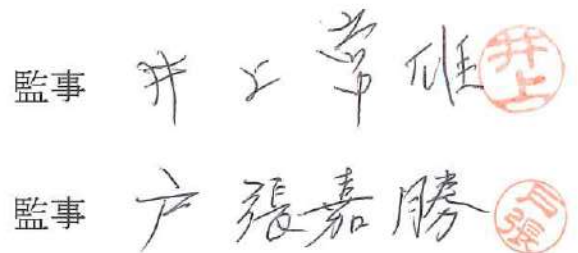 監事 井上常雄 井上
監事 戸張嘉勝 戸張